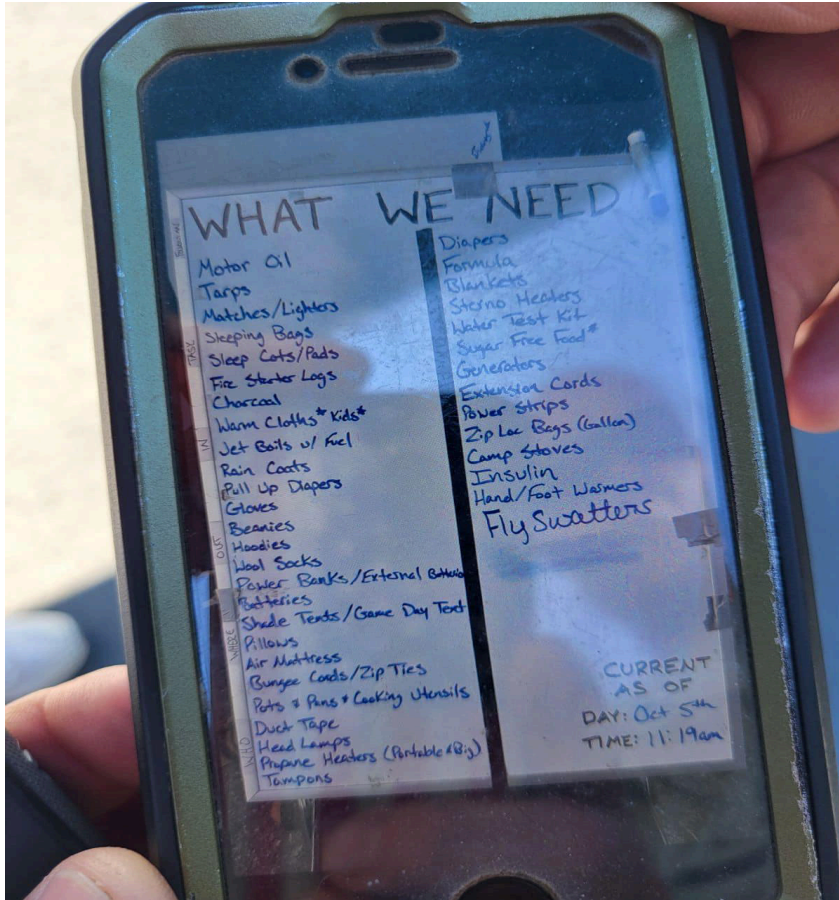 WHAT WE NEED
Motor Oil
Tarps
Matches/Lighters
Sleeping Bags
Sleep Cots/Pads
Fire Starter Logs
Charcoal
Warm Cloths* Kids*
Jet Boils w/ Fuel
Rain Coats
Pull Up Diapers
Gloves
Beanies
Hoodies
Wool Socks
Power Banks/External Batteries
Batteries
Shade Tents/Game Day Tent
Pillows
Air Mattress
Bungee Cords/Zip Ties
Pots & Pans & Cooking Utensils
Duct Tape
Head Lamps
Propane Heaters (Portable & Big)
Tampons
Diapers
Formula
Blankets
Sterno Heaters
Water Test Kit
Sugar Free Food*
Generators
Extension Cords
Power Strips
Zip Loc Bags (Gallon)
Camp Stoves
Insulin
Hand/Foot Warmers
Fly Swatters
CURRENT
AS OF
DAY: Oct 5th
TIME: 11:19am
TASK
IN
OUT
WHERE
WHO